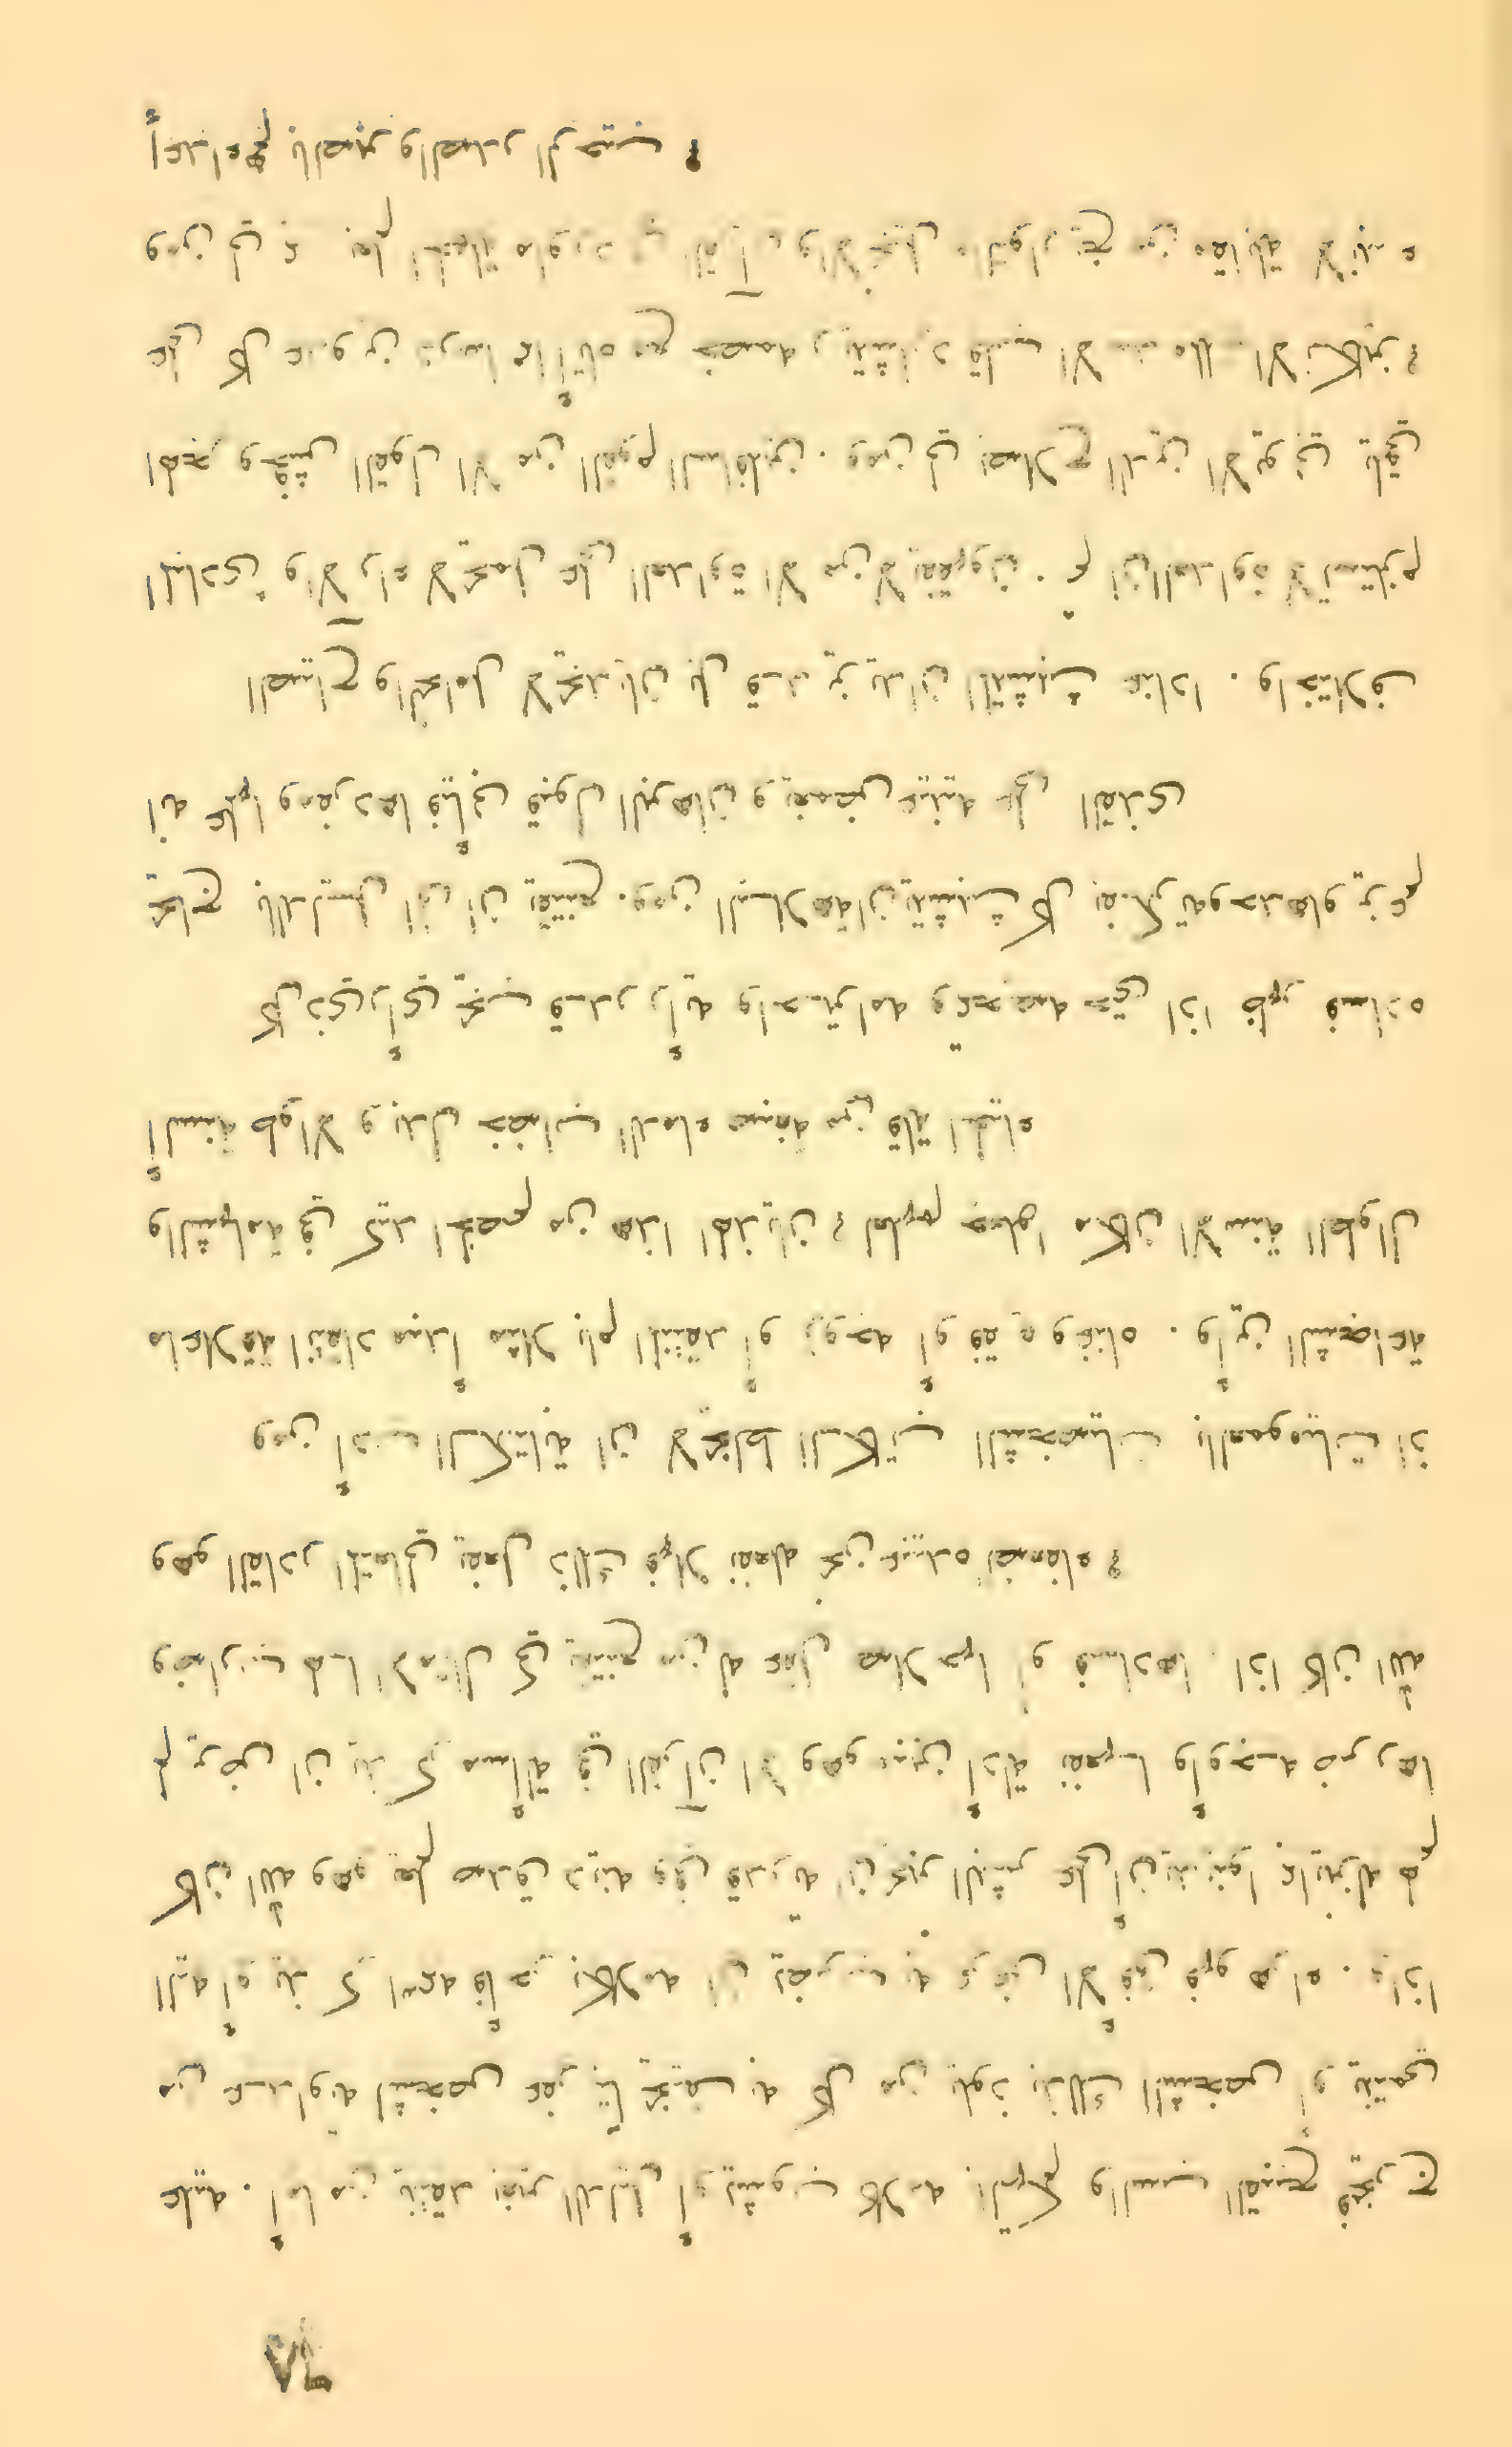 عليه . أما من ينتقد بغير الدليل أو يشوب كلامه بالتهكم والسب القبيح فيخرج
من عداوته لشخص يخيف به كل من يلوذ بذلك الشخص أو ينتمي
اليه أو يذكر اسمه فأحر بكلامه ان يضرب به عرض الأفق فهو هراء . واذا
كان الله وهو يعلم صدق دينه وفي قدرته ان يجبر البشر على أن يدينوا
لم يرض ان يذكر مسألة في القرآن الا وهو يبين أدلة نفعها وأوجه ضررها
وضرب لها الامثال كي يقتنع من له عقل بصلاحها أو فسادها . اذا كان الله
وهو القادر المتعالي يفعل ذلك فهلا يفعله نحن عبيده الضعفاء ؟
ومن أدب الكتابة ان لا يخلط الكاتب الشخصيات بالعموميات اذ
ما علاقة انتقاد مبدأ مثلا بام المنتقد أو زوجه أو فقره وغناه . وأين الشجاعة
والشهامة في كيد الخصم من هذا الهذيان ؟ لعلهم جعلوا مكان الاسنة الطوال
ألسنة طوالا وبدل خضاب الدماء صبغة من قلة الحياء
كل ذي رأي يجب قدر رأيه واحترامه حتى اذا ظهر فساده
بالدليل الى ان يقتنع . ومن البلاهة ان يتشبث كل بفكرته وحدها ويزعم
انه فيأبى قبول البرهان ويغمض عينيه على القذى
الصياح لا يجديان بل قد يزيدان المتشبث عنادا . واختلاف
المبادئ والآراء لا يحمل على العداوة الا من لا يفقهون . ثم ان العداوة لا تستلزم
الهجر وفحش القول الا من القوم السافلين . ومن لي باصلاح الذين
على كل عدو
ومن لي يعلم ما ورد في القرآن والانجيل من مقابلة
أعداءهم بالصبر والصدر الرحيب ؟